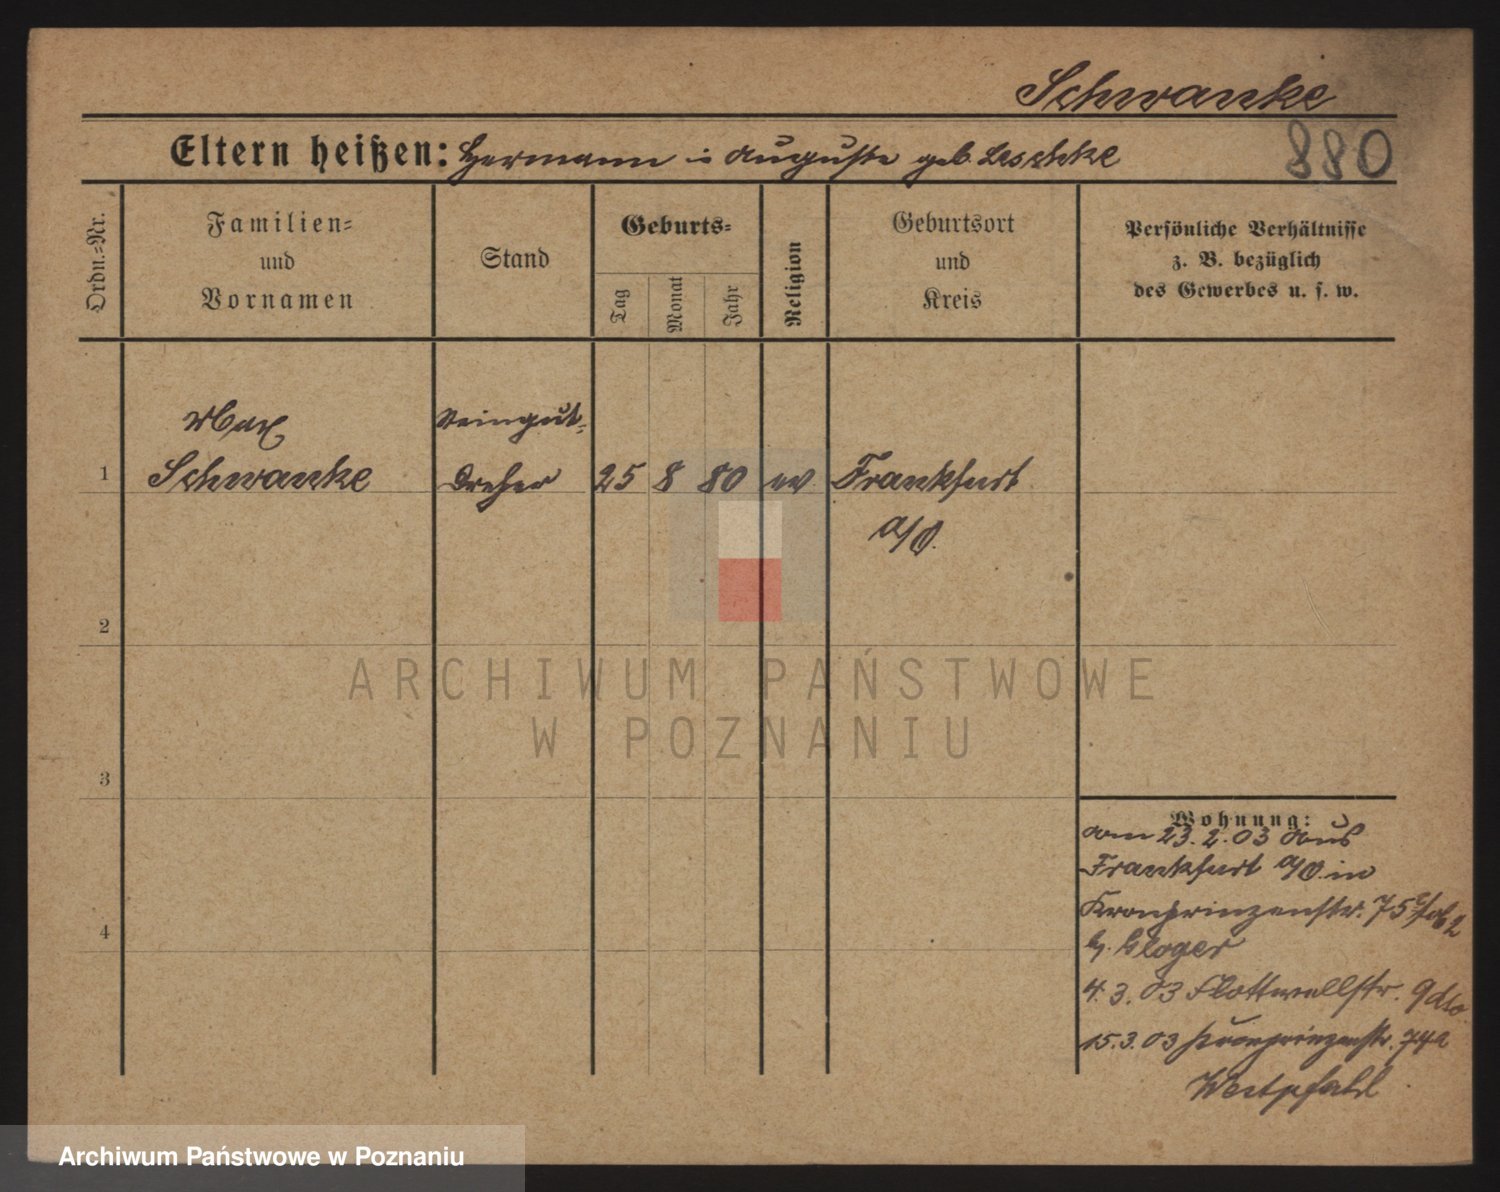 Schwanke
880
Eltern heißen: Hermann u Auguste geb. Leschke
Ordn.=Nr.
Familien=
und
Vornamen
Stand
Geburts=
Tag
Monat
Jahr
Religion
Geburtsort
und
Kreis
Persönliche Verhältnisse
z. B. bezüglich
des Gewerbes u. s. w.
1
Max
Schwanke
Dreher
25 8 80 ev
Frankfurt
a/O.
2
3
4
Wohnung:
am 23. 2. 03 aus
Frankfurt a/O. in
Kronprinzenstr. 75
b. Gloger
4. 3. 03 Flottwellstr. 9 dto
15. 3. 03 Kronprinzenstr. 74a
Westpfahl
ARCHIWUM PAŃSTWOWE
W POZNANIU
Archiwum Państwowe w Poznaniu